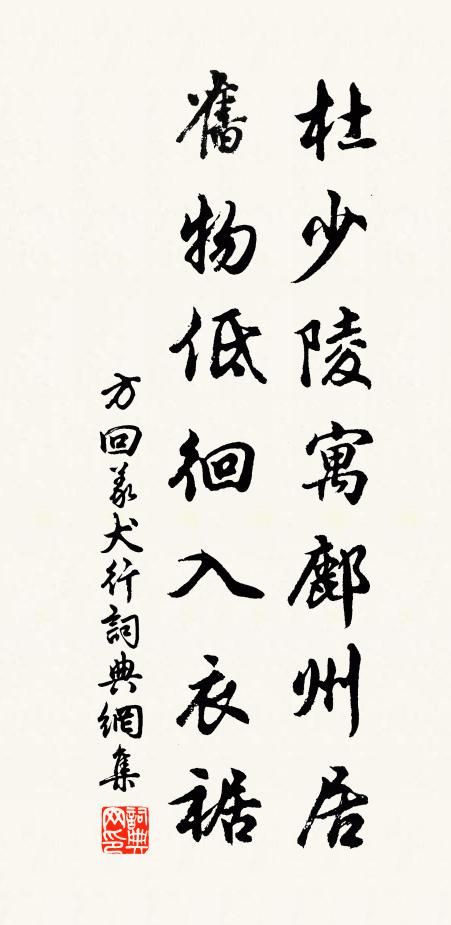 杜少陵寓鄜州居
舊物低徊入衣裾
方回義犬行詞典網集
詞典网印